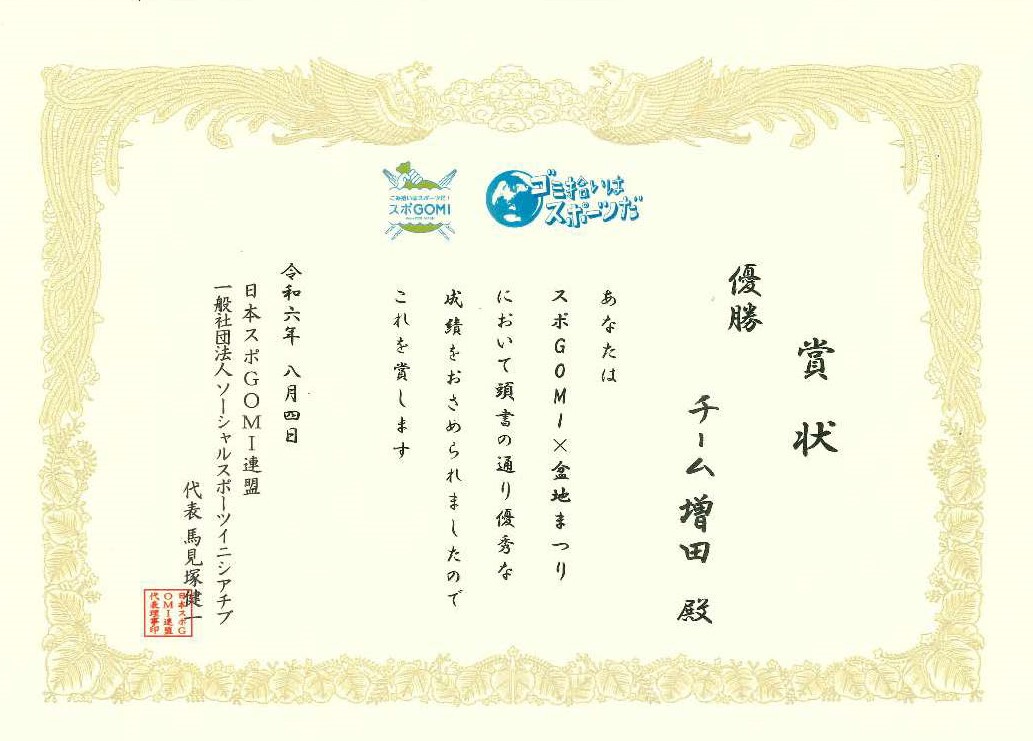 ごみ拾いはスポーツだ!
スポGOMI
ゴミ拾いは
スポーツだ
賞状
優勝
チーム増田 殿
あなたは
スポGOMI×盆地まつり
において頭書の通り優秀な
成績をおさめられましたので
これを賞します
令和六年 八月四日
日本スポGOMI連盟
一般社団法人 ソーシャルスポーツイニシアチブ
代表 馬見塚健一
日本スポG
OMI連盟
代表理事印